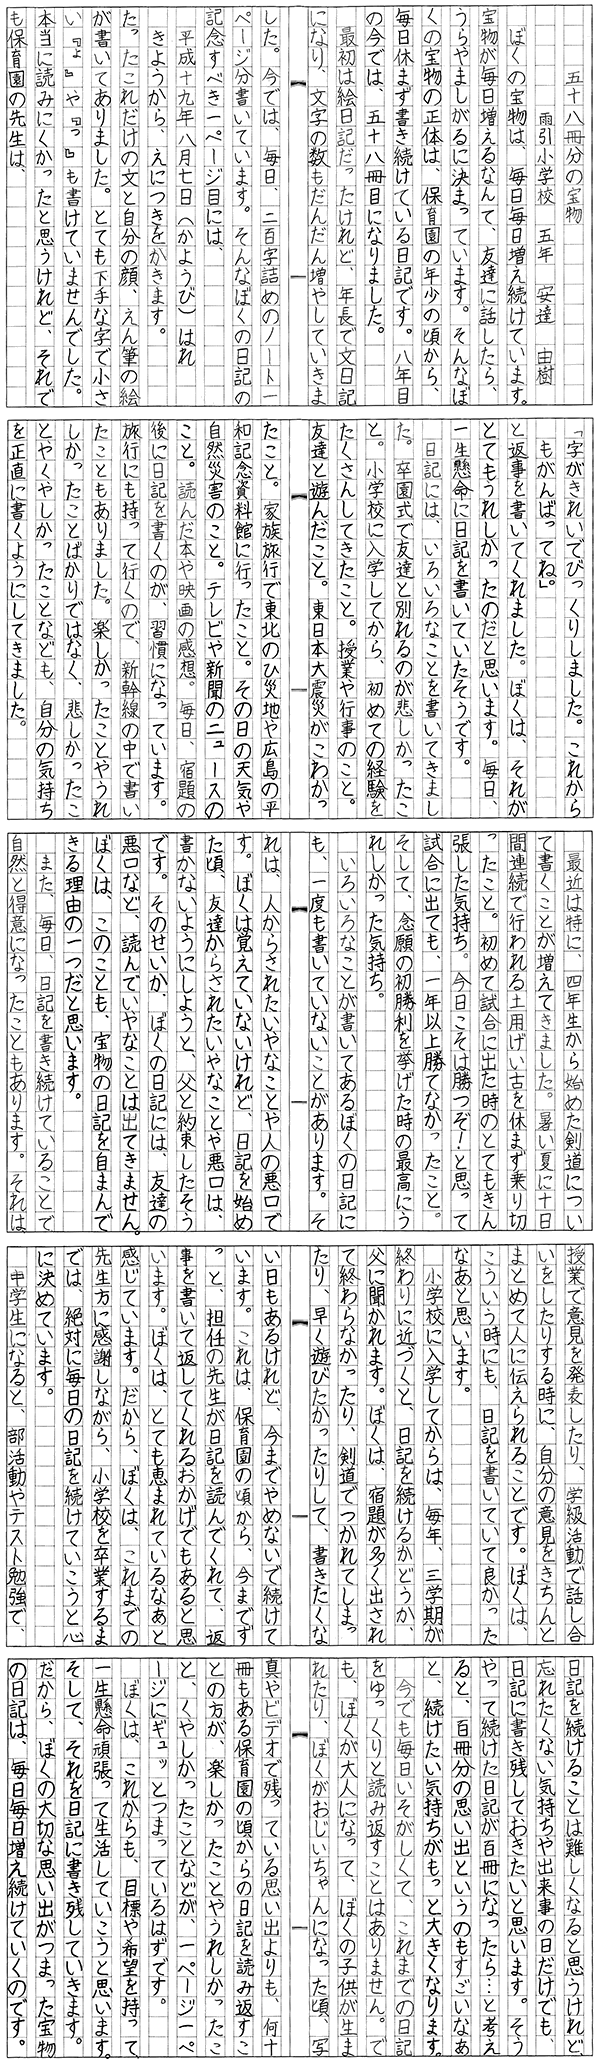 五十八冊分の宝物
雨引小学校　五年　安達　由樹
ぼくの宝物は、毎日毎日増え続けています。
宝物が毎日増えるなんて、友達に話したら、
うらやましがるに決まっています。そんなぼ
くの宝物の正体は、保育園の年少の頃から、
毎日休まず書き続けている日記です。八年目
の今では、五十八冊目になりました。
最初は絵日記だったけれど、年長で文日記
になり、文字の数もだんだん増やしていきま
した。今では、毎日、二百字詰めのノート一
ページ分書いています。そんなぼくの日記の
記念すべき一ページ目には、
平成十九年八月七日（かようび）はれ
きようから、えにつきをかきます。
た。たこれだけの文と自分の顔、えん筆の絵
が書いてありました。とても下手な字で小さ
い『ょ』や『っ』も書けていませんでした。
本当に読みにくかったと思うけれど、それで
も保育園の先生は、
「字がきれいでびっくりしました。これから
もがんばってね」。
と返事を書いてくれました。ぼくは、それが
とてもうれしかったのだと思います。毎日、
一生懸命に日記を書いていたそうです。
日記には、いろいろなことを書いてきまし
た。卒園式で友達と別れるのが悲しかったこ
と。小学校に入学してから、初めての経験を
たくさんしてきたこと。授業や行事のこと。
友達と遊んだこと。東日本大震災がこわかっ
たこと。家族旅行で東北のひ災地や広島の平
和記念資料館に行ったこと。その日の天気や
自然災害のこと。テレビや新聞のニュースの
こと。読んだ本や映画の感想。毎日、宿題の
後に日記を書くのが、習慣になっています。
旅行にも持って行くので、新幹線の中で書い
たこともありました。楽しかったことやうれ
しかったことばかりではなく、悲しかったこ
とやくやしかったことなども、自分の気持ち
を正直に書くようにしてきました。
最近は特に、四年生から始めた剣道につい
て書くことが増えてきました。暑い夏に十日
間連続で行われる土用げい古を休まず乗り切
ったこと。初めて試合に出た時のとてもきん
張した気持ち。今日こそは勝つぞ！と思って
試合に出ても、一年以上勝てなかったこと。
そして、念願の初勝利を挙げた時の最高にう
れしかった気持ち。
いろいろなことが書いてあるぼくの日記に
も、一度も書いていないことがあります。そ
れは、人からされたいやなことや人の悪口で
す。ぼくは覚えていないけれど、日記を始め
た頃、友達からされたいやなことや悪口は、
書かないようにしようと、父と約束したそう
です。そのせいか、ぼくの日記には、友達の
悪口など、読んでいやなことは出てきません。
ぼくは、このことも、宝物の日記を自まんで
きる理由の一つだと思います。
また、毎日、日記を書き続けていることで
自然と得意になったこともあります。それは
授業で意見を発表したり、学級活動で話し合
いをしたりする時に、自分の意見をきちんと
まとめて人に伝えられることです。ぼくは、
こういう時にも、日記を書いていて良かった
なあと思います。
小学校に入学してからは、毎年、三学期が
終わりに近づくと、日記を続けるかどうか、
父に聞かれます。ぼくは、宿題が多く出され
て終わらなかったり、剣道でつかれてしまっ
たり、早く遊びたかったりして、書きたくな
い日もあるけれど、今までやめないで続けて
います。これは、保育園の頃から、今までず
っと、担任の先生が日記を読んでくれて、返
事を書いて返してくれるおかげでもあると思
います。ぼくは、とても恵まれているなあと
感じています。だから、ぼくは、これまでの
先生方に感謝しながら、小学校を卒業するま
では、絶対に毎日の日記を続けていこうと心
に決めています。
中学生になると、部活動やテスト勉強で、
日記を続けることは難しくなると思うけれど、
忘れたくない気持ちや出来事の日だけでも、
日記に書き残しておきたいと思います。そう
やって続けた日記が百冊になったら…と考え
ると、百冊分の思い出というのもすごいなあ
と、続けたい気持ちがもっと大きくなります。
今でも毎日いそがしくて、これまでの日記
をゆっくりと読み返すことはありません。で
も、ぼくが大人になって、ぼくの子供が生ま
れたり、ぼくがおじいちゃんになった頃、写
真やビデオで残っている思い出よりも、何十
冊もある保育園の頃からの日記を読み返すこ
との方が、楽しかったことやうれしかったこ
と、くやしかったことなどが、一ページ一ペ
ージにギュッとつまっているはずです。
ぼくは、これからも、目標や希望を持って、
一生懸命頑張って生活していこうと思います。
そして、それを日記に書き残していきます。
だから、ぼくの大切な思い出がつまった宝物
の日記は、毎日毎日増え続けていくのです。